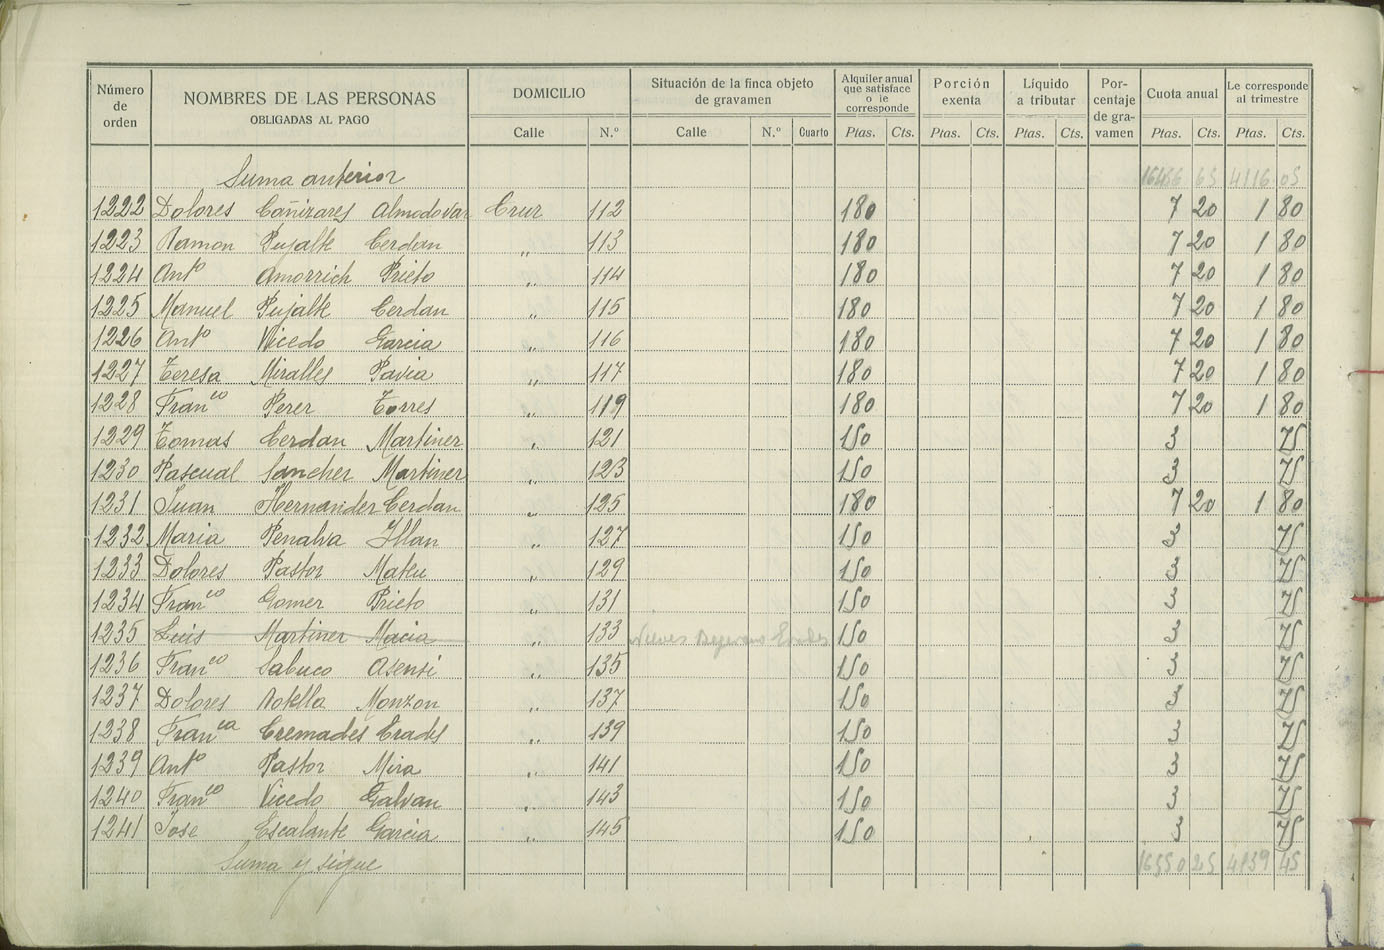 Número de orden | NOMBRES DE LAS PERSONAS OBLIGADAS AL PAGO | DOMICILIO Calle | N.º | Situación de la finca objeto de gravamen Calle | N.º | Cuarto | Alquiler anual que satisface o le corresponde Ptas. | Cts. | Porción exenta Ptas. | Cts. | Líquido a tributar Ptas. | Cts. | Porcentaje de gravamen | Cuota anual Ptas. | Cts. | Le corresponde al trimestre Ptas. | Cts.
Suma anterior 65 4116 05
1222 Dolores Cañizares Almodovar Crur 112 180 7 20 1 80
1223 Ramon Pujalte Cerdan " 113 180 7 20 1 80
1224 Antº Amorrich Prieto " 114 180 7 20 1 80
1225 Manuel Pujalte Cerdan " 115 180 7 20 1 80
1226 Antº Vicedo Garcia " 116 180 7 20 1 80
1227 Teresa Miralles Pavia " 117 180 7 20 1 80
1228 Franco Perer Torres " 119 180 7 20 1 80
1229 Tomas Cerdan Martiner " 121 150 3 75
1230 Pascual Sancher Martiner " 123 150 3 75
1231 Juan Hernander Cerdan " 125 180 7 20 1 80
1232 Maria Penalva Illan " 127 150 3 75
1233 Dolores Pastor Mateu " 129 150 3 75
1234 Franco Gomer Prieto " 131 150 3 75
1235 Luis Martiner Macia " 133 150 3 75
1236 Franco Sabuco Asensi " 135 150 3 75
1237 Dolores Monzon " 137 150 3 75
1238 Franca Cremades Erades " 139 150 3 75
1239 Antº Pastor Mira " 141 150 3 75
1240 Franco Vicedo Galvan " 143 150 3 75
1241 Jose Escalante Garcia " 145 150 3 75
Suma y sigue 16550 25 45